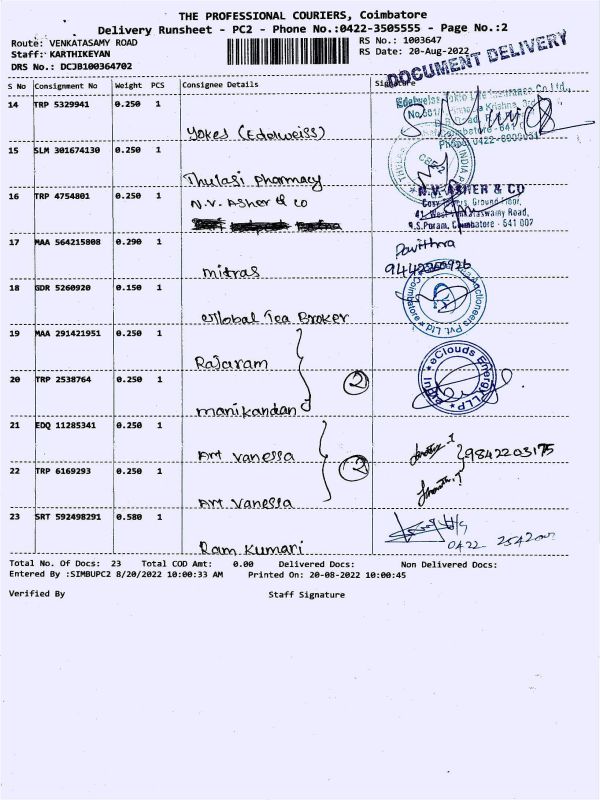 THE PROFESSIONAL COURIERS, Coimbatore
Delivery Runsheet - PC2 - Phone No.:0422-3505555 - Page No.:2
Route: VENKATASAMY ROAD
RS No.: 1003647
Staff: KARTHIKEYAN
RS Date: 20-Aug-2022
DRS No.: DCJB100364702
DOCUMENT DELIVERY
S No Consignment No Weight PCS Consignee Details Signature
14 TRP 5329941 0.250 1
Yokes (Edelweiss)
15 SLM 301674130 0.250 1
Thulasi Pharmacy
16 TRP 4754801 0.250 1
N.V. Asher & Co
N.V. ASHER & CO
Ground Floor,
41, West Venkataswamy Road,
R.S.Puram, Coimbatore - 641 002
17 MAA 564215808 0.290 1
Pavithra
mitras
18 GDR 5260920 0.150 1
Global Tea Broker
Auctioneers Pvt. Ltd
Coimbatore
19 MAA 291421951 0.250 1
Rajaram
2
eClouds Energy LLP
20 TRP 2538764 0.250 1
Manikandan
21 EDQ 11285341 0.250 1
Art Vanessa
2
9842203175
22 TRP 6169293 0.250 1
Art Vanessa
23 SRT 592498291 0.580 1
Ram Kumari
0422
Total No. Of Docs: 23 Total COD Amt: 0.00 Delivered Docs: Non Delivered Docs:
Entered By :SIMBUPC2 8/20/2022 10:00:33 AM Printed On: 20-08-2022 10:00:45
Verified By Staff Signature